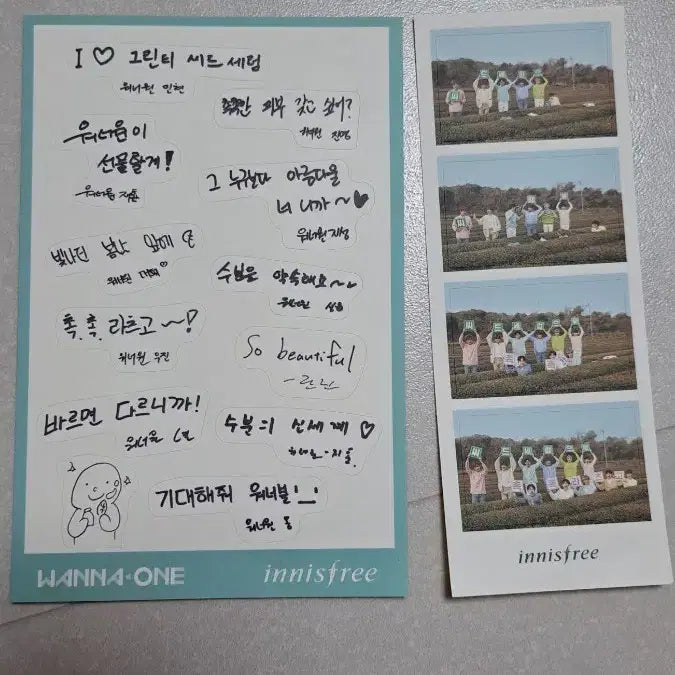 I ♡ 그린티 씨드 세럼
워너원 민현
촉촉한 피부 갖고 싶어?
워너원 진영
워너원이
선물할게!
워너원 지훈
그 누구보다 아름다울
너니까~♥
워너원 재환
빛나진
앞에
워너원 대휘♡
수분은 약속해요~
워너원 성운
촉, 촉, 리츠고~!
워너원 우진
So beautiful
바르면 다르니까!
워너원
수분의 신세계 ♡
기대해줘 워너블
워너원
WANNA·ONE
innisfree
innisfree